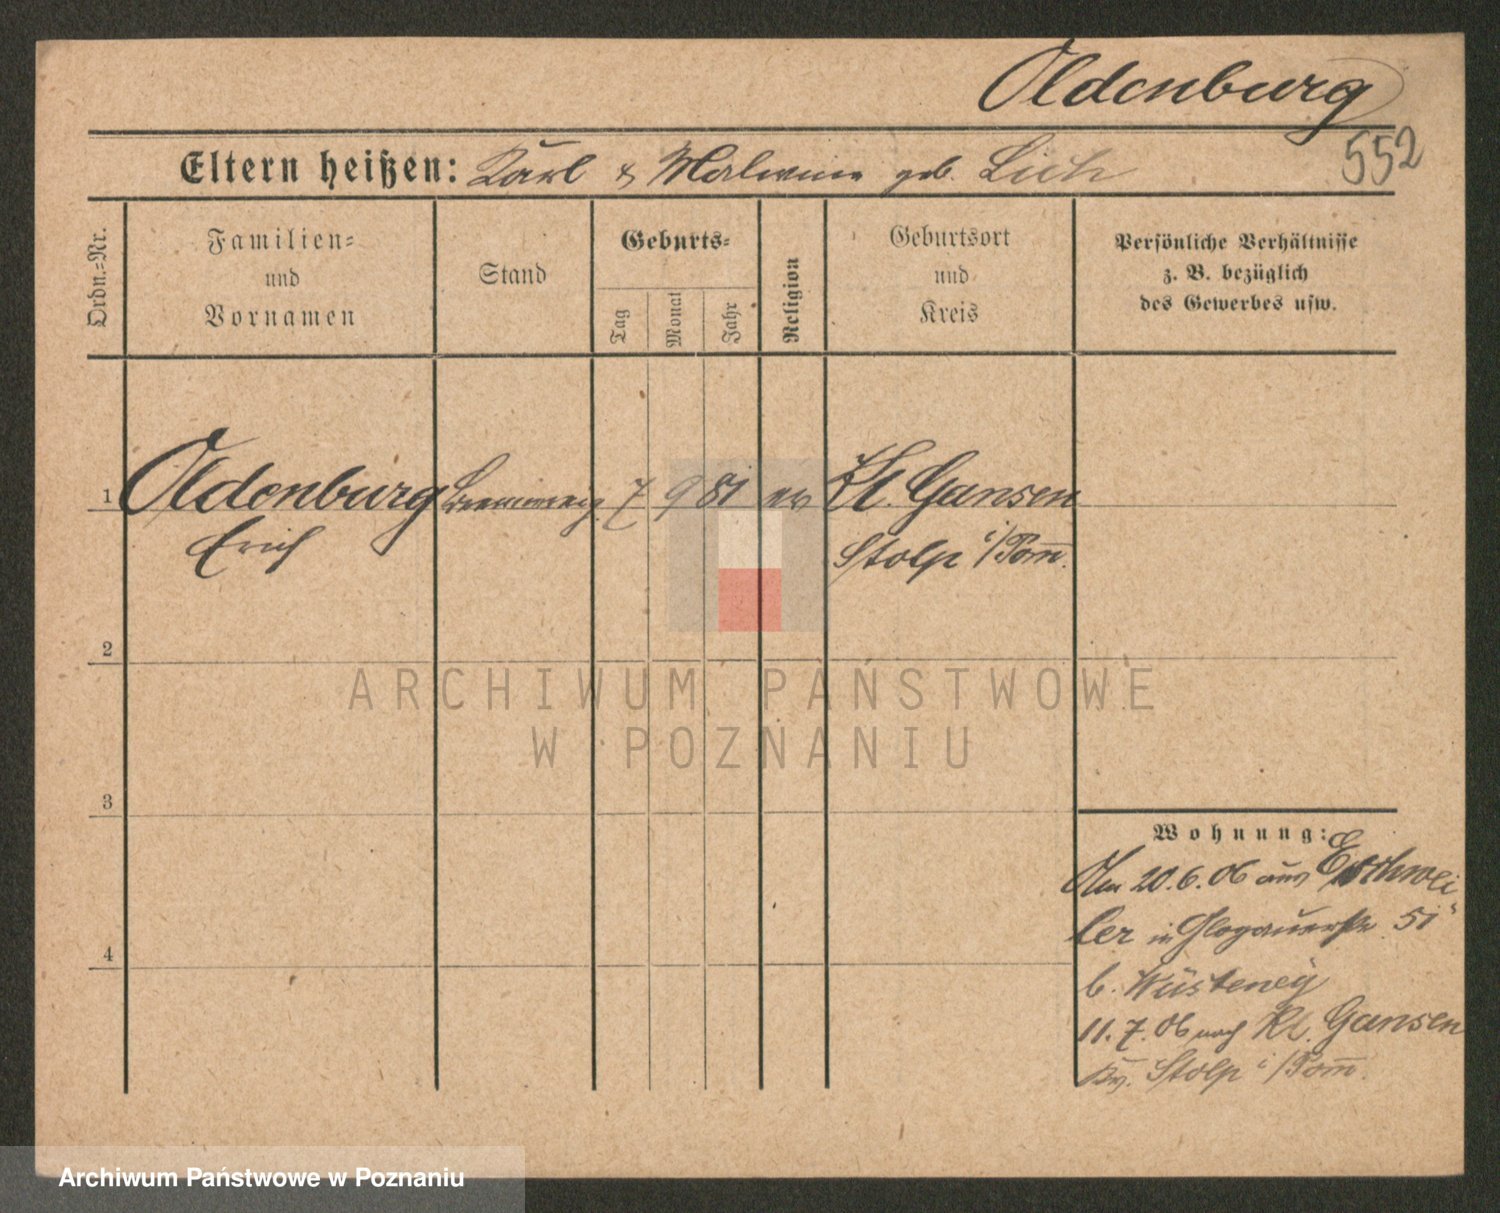 Oldenburg
552
Eltern heißen: Karl & Malwine geb. Lich
Ordn.-Nr.
Familien-
und
Vornamen
Stand
Geburts-
Tag
Monat
Jahr
Religion
Geburtsort
und
Kreis
Persönliche Verhältnisse
z. B. bezüglich
des Gewerbes usw.
1 Oldenburg 7 9 81 ev Kl. Gansen
Erich Stolp i/Pom̄.
2
3
4
ARCHIWUM PAŃSTWOWE
W POZNANIU
Wohnung:
Am 20.6.06 aus Eschwei
ler in Glogauerstr. 51
b. Wüsteney
11.7.06 nach Kl. Gansen
Kr. Stolp i/Pom̄.
Archiwum Państwowe w Poznaniu